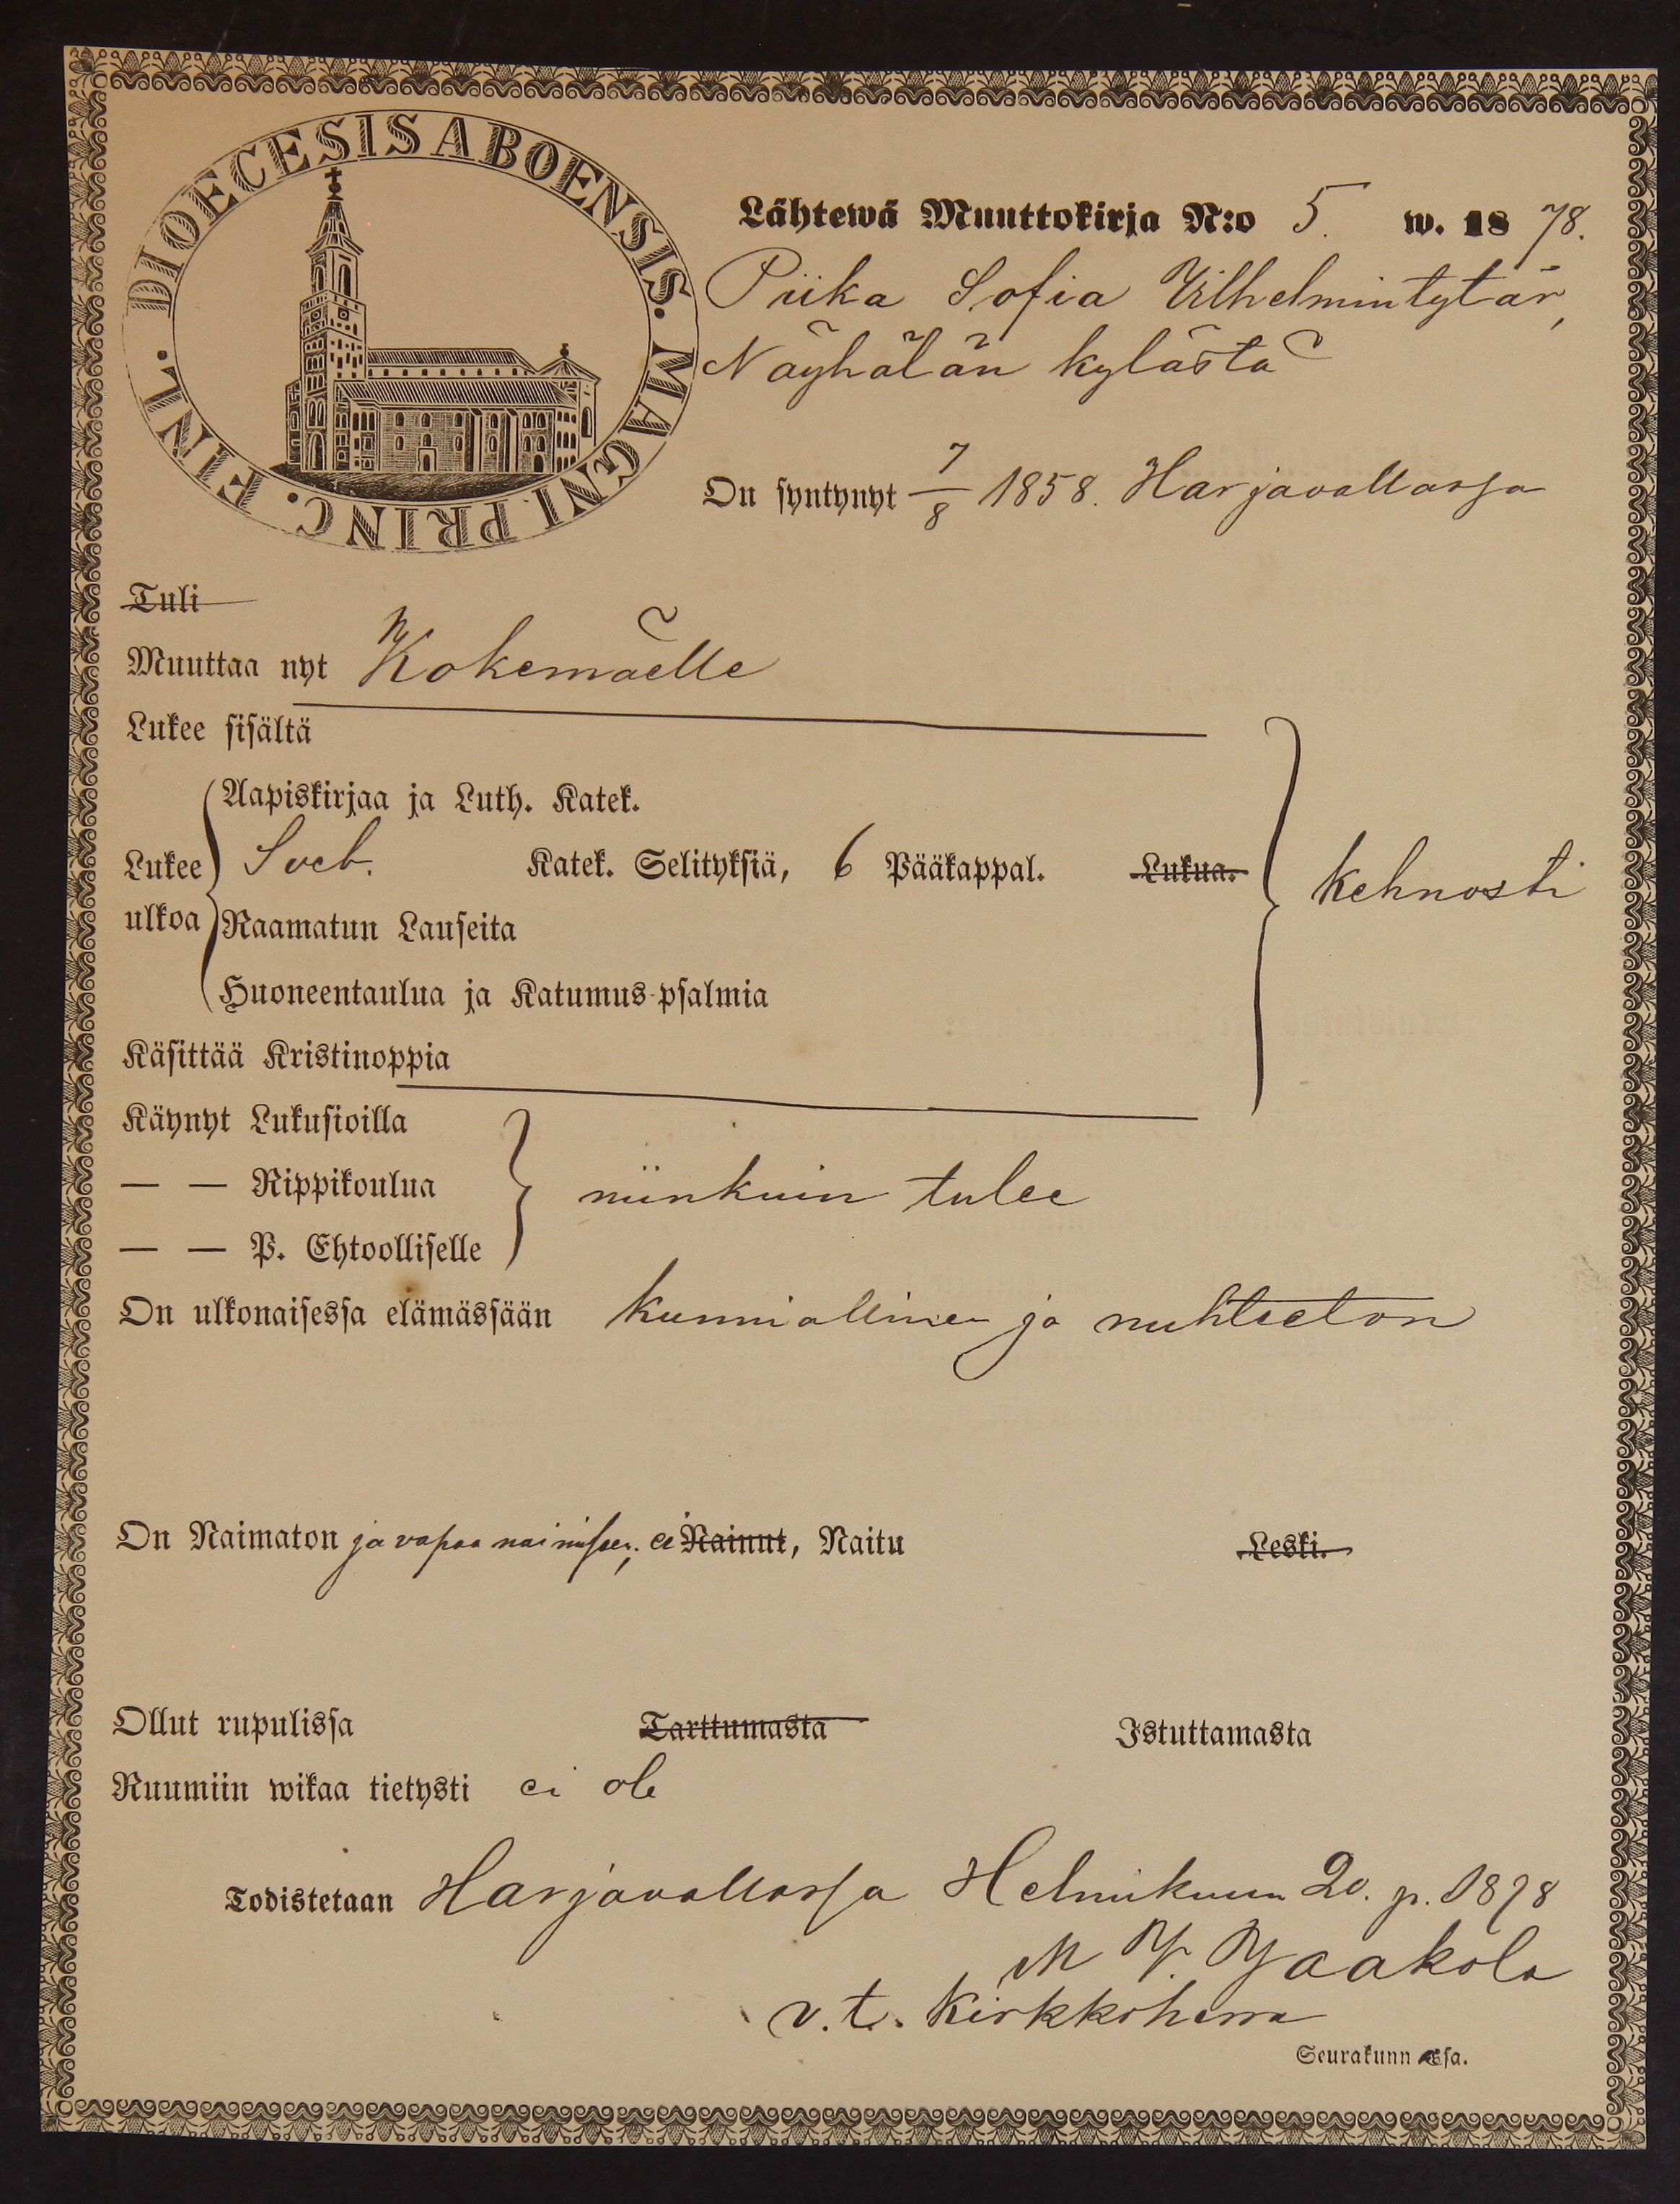 DIOECESIS ABOENSIS. MAGNI PRINC. FINL.
Lähtewä Muuttokirja N:o 5. w. 1878.
Piika Sofia Vilhelmintytär,
Näyhälän kylästä
On syntynyt 7/8 1858. Harjavallassa
Tuli
Muuttaa nyt Kokemäelle
Lukee sisältä
Aapiskirjaa ja Luth. Katek.
Lukee ulkoa Sveb. Katek. Selityksiä, 6 Pääkappal. Lukua. kehnosti
Raamatun Lauseita
Huoneentaulua ja Katumus-psalmia
Käsittää Kristinoppia
Käynyt Lukusioilla
— — Rippikoulua niinkuin tulee
— — P. Ehtoolliselle
On ulkonaisessa elämässään kunniallinen ja nuhteeton
On Naimaton ja vapaa naimiseen, ei Nainut, Naitu Leski.
Ollut rupulissa Tarttumasta Istuttamasta
Ruumiin wikaa tietysti ei ole
Todistetaan Harjavallassa Helmikuun 20. p. 1878
Jaakola
v. t. Kirkkoherra
Seurakunn sa.